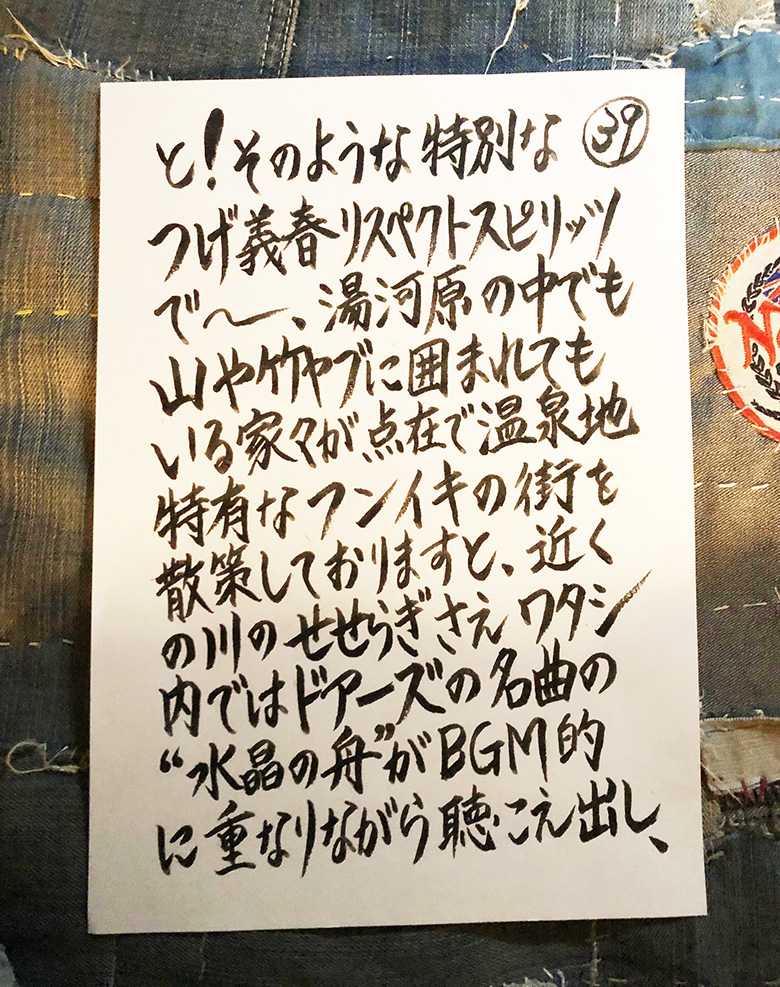 と!そのような特別な ㊴
つげ義春リスペクトスピリッツ
で〜、湯河原の中でも
山や竹ヤブに囲まれても
いる家々が点在で温泉地
特有なフンイキの街を
散策しておりますと、近く
の川のせせらぎさえワタシ
内ではドアーズの名曲の
“水晶の舟”がBGM的
に重なりながら聴こえ出し、